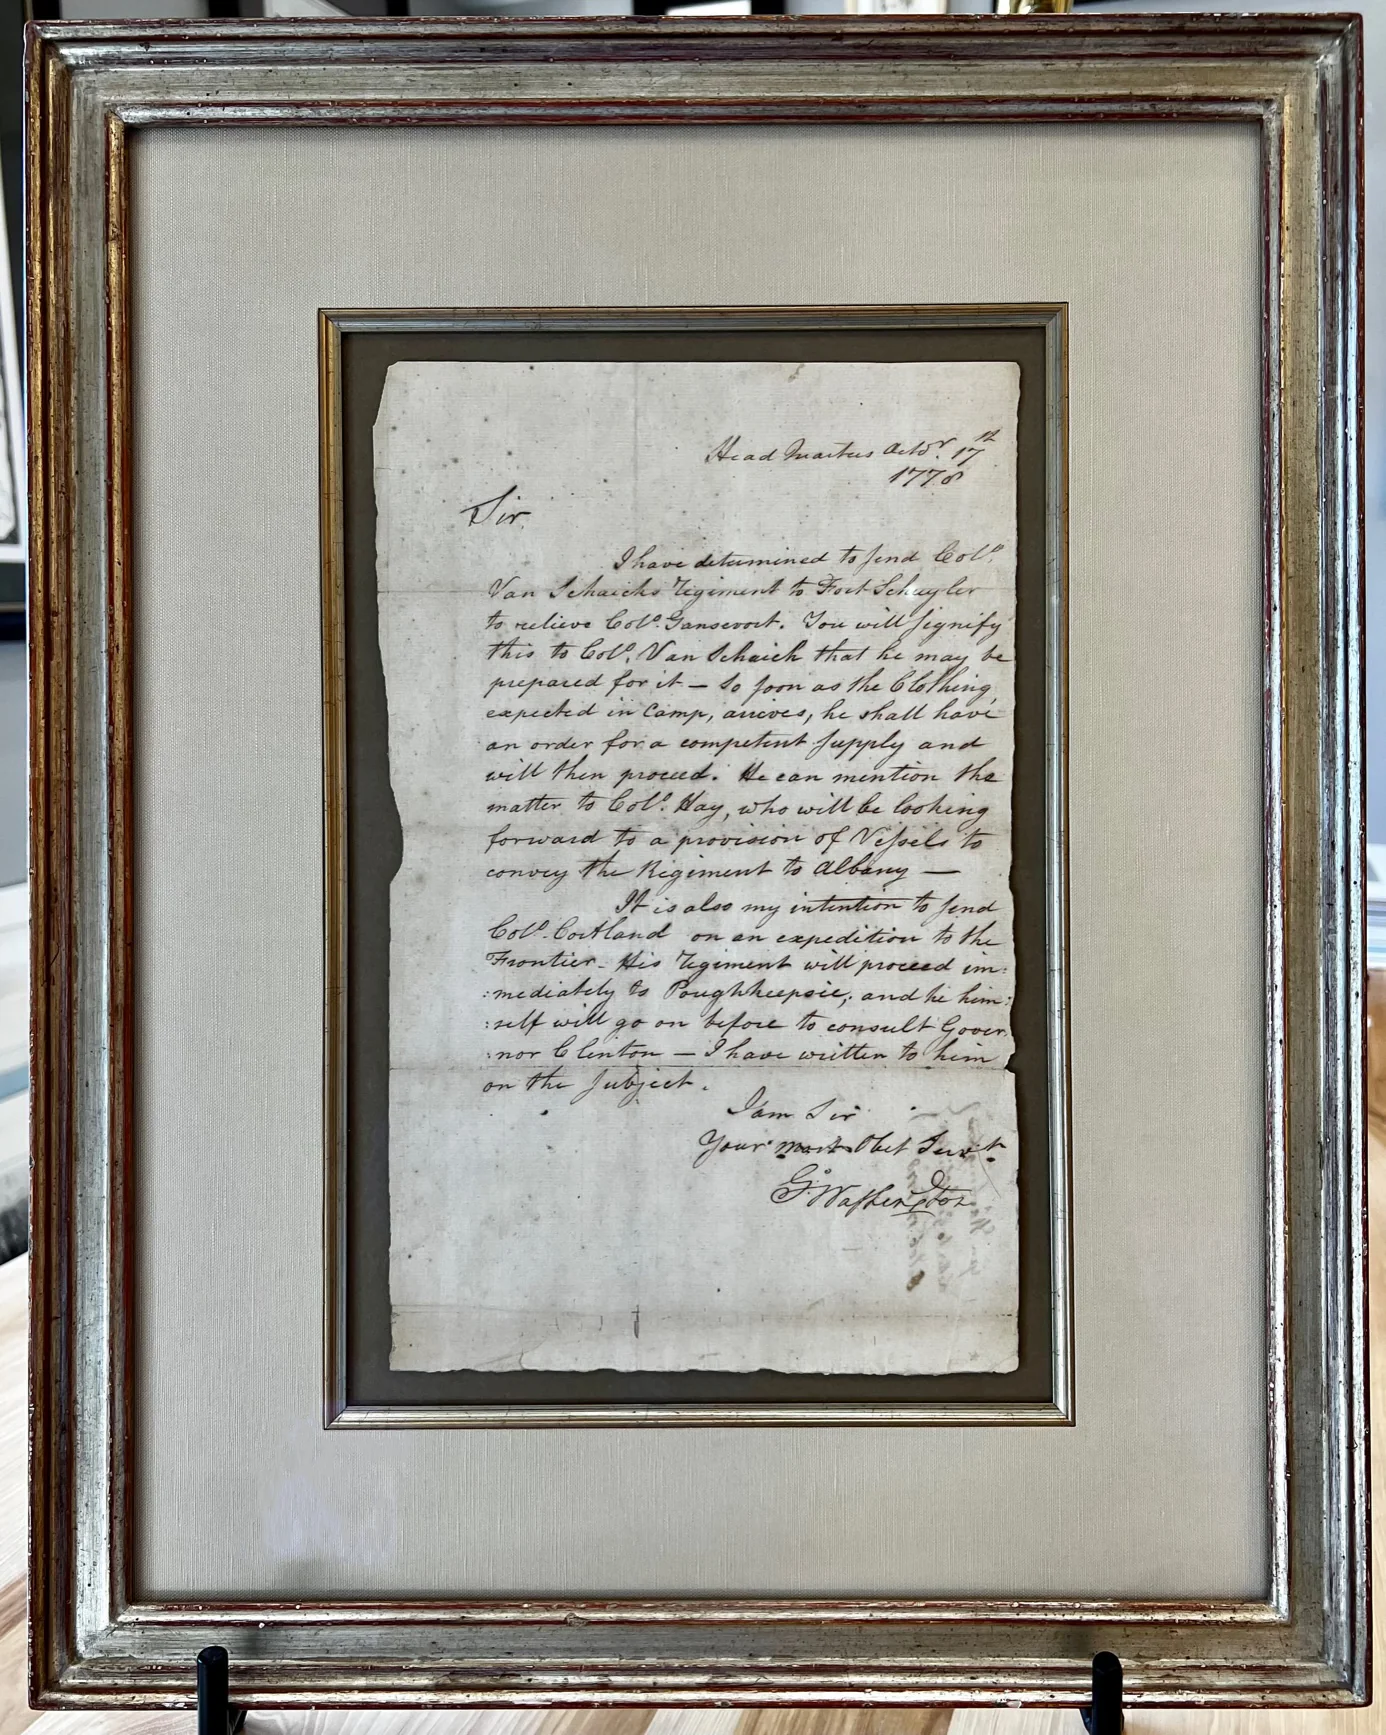 Head Quarters Octobr. 17th
1778
Sir
I have determined to send Colo.
Van Schaicks Regiment to Fort Schuyler
to relieve Colo. Gansevort. You will signify
this to Colo. Van Schaick that he may be
prepared for it — So soon as the Clothing,
expected in Camp, arrives, he shall have
an order for a competent supply and
will then proceed. He can mention the
matter to Colo. Hay, who will be looking
forward to a provision of Vessels to
convey the Regiment to Albany —
It is also my intention to send
Colo. Cortland on an expedition to the
Frontier. His Regiment will proceed im:
:mediately to Poughkeepsie; and he him:
:self will go on before to consult Gover:
:nor Clinton — I have written to him
on the subject.
I am Sir
Your most Obet Servt.
Go: Washington